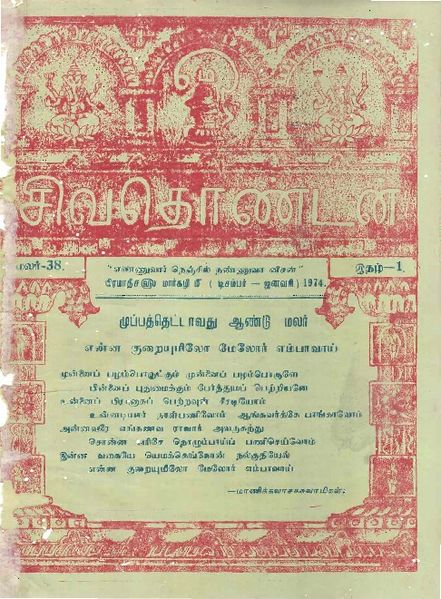 சிவதொண்டன்
மலர்-38.
இதழ்-1
"எண்ணுவார் நெஞ்சில் நண்ணுவா னீசன்"
பிரமாதீச மார்கழி மீ ( டிசம்பர் – ஜனவரி ) 1974.
முப்பத்தெட்டாவது ஆண்டு மலர்
என்ன குறையுமிலோ மேலோர் எம்பாவாய்
முன்னைப் பழம்பொருட்கும் முன்னைப் பழம்பொருளே
பின்னைப் புதுமைக்கும் பேர்த்துமப் பெற்றியனே
உன்னைப் பிரானாகப் பெற்றவுன் சீரடியோம்
உன்னடியார் தாள்பணிவோம் ஆங்கவர்க்கே பாங்காவோம்
அன்னவரே எங்கணவ ராவார் அவருகந்து
சொன்ன பரிசே தொழும்பாய்ப் பணிசெய்வோம்
இன்ன வகையே யெமக்கெங்கோன் நல்குதியேல்
என்ன குறையுமிலோ மேலோர் எம்பாவாய்
—மாணிக்கவாசகசுவாமிகள்.